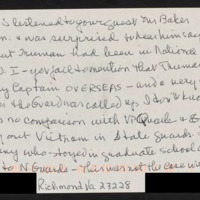 is listened to your guest Mr Baker
n. & was surprised to hear him say
ut Truman had been in National
I - you fail to mention that Truman
y Captain OVERSEAS - and a very
the Guard was called up. I don't
no comparison with VP Quale &
out Vietnam in State Guards.
ny who stayed in graduate school
to N Guards - This was not the case
Richmond Va 23228